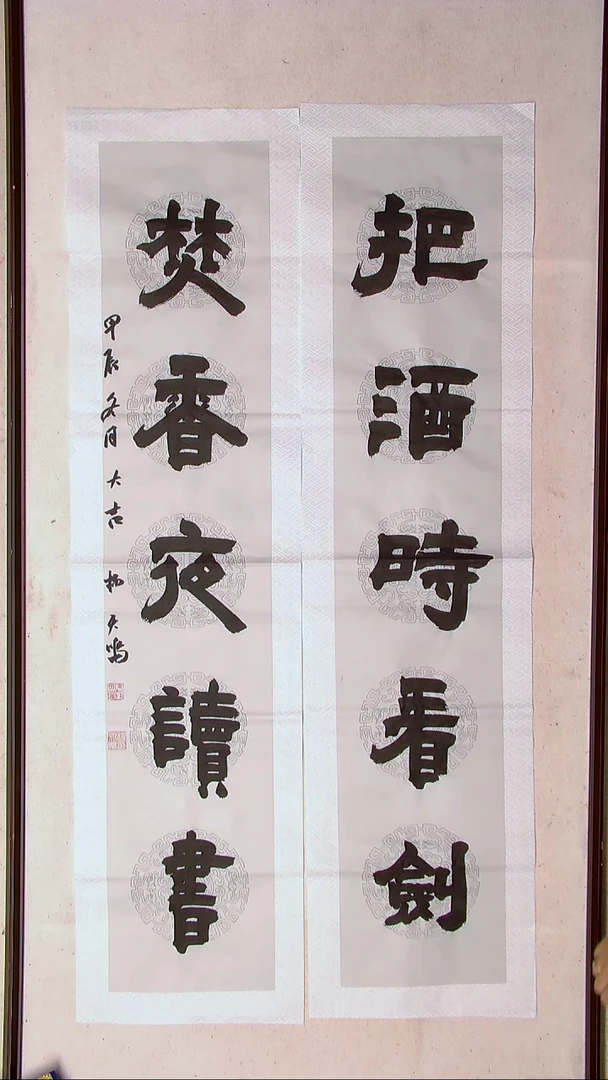 把酒時看劍
焚香夜讀書
甲辰冬月大吉 楊天鸣